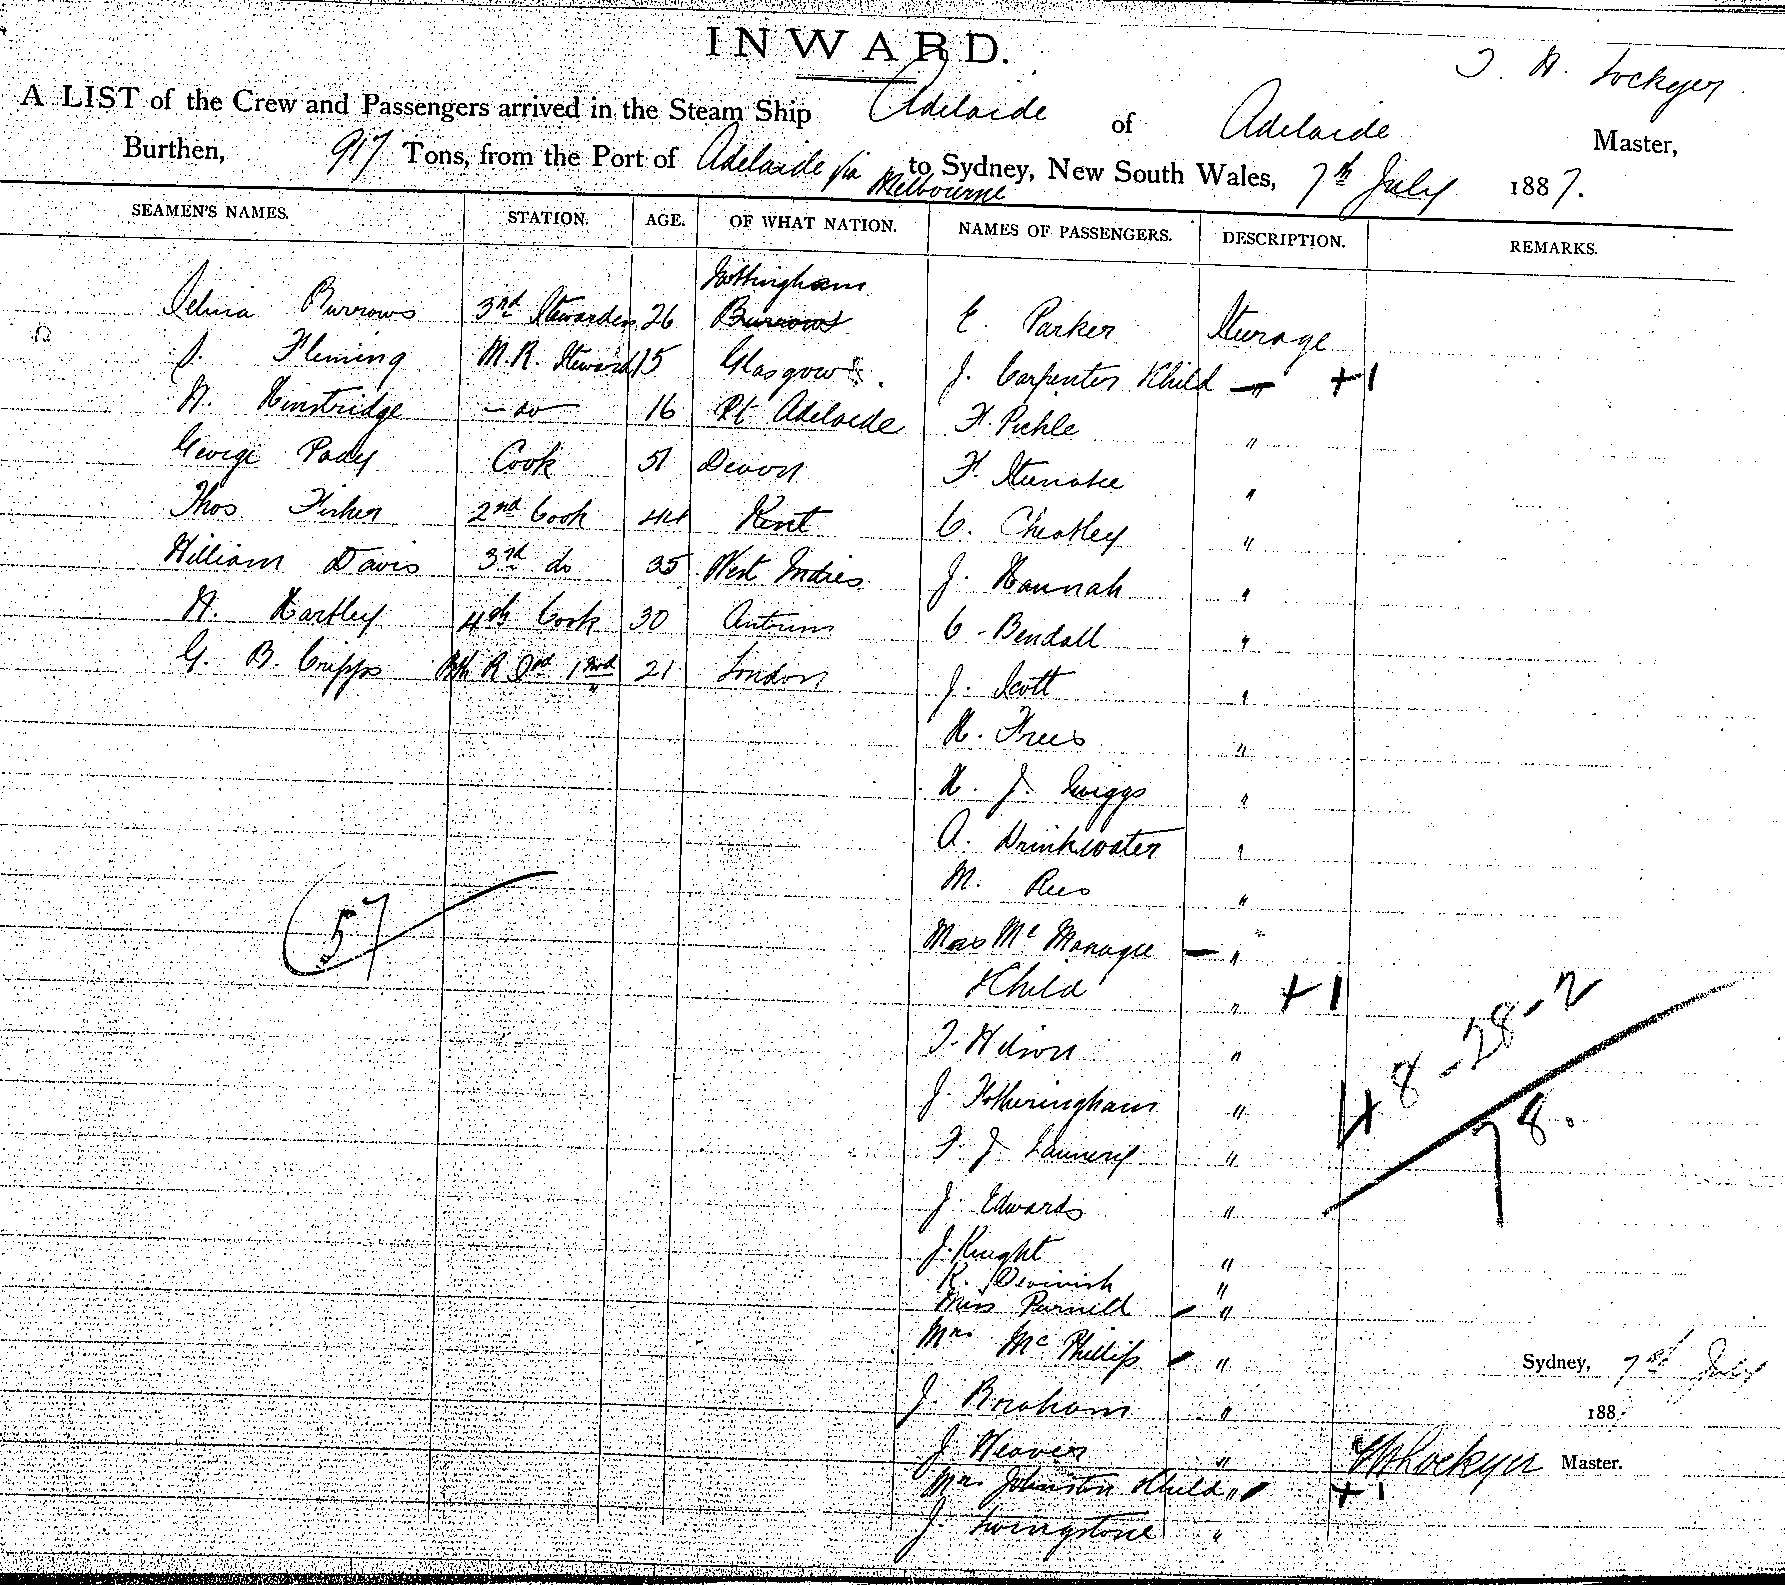 INWARD.
T. A. Lockyer
A LIST of the Crew and Passengers arrived in the Steam Ship Adelaide of Adelaide Master,
Burthen, 917 Tons, from the Port of Adelaide via Melbourne to Sydney, New South Wales, 7th July 1887.
SEAMEN'S NAMES. STATION. AGE. OF WHAT NATION. NAMES OF PASSENGERS. DESCRIPTION. REMARKS.
Selina Burrows 3rd Stewardess 26 Nottingham Burrows E. Parker Steerage
J. Fleming M.R. Steward 15 Glasgow J. Carpenter & Child " +1
H. Kinstridge do 16 Pt Adelaide F. Pickle "
George Pady Cook 51 Devon F. "
Thos Fisher 2nd Cook 44 Kent C. Cheatley "
William Davis 3rd do 35 West Indies J. Hannah "
H. Hartley 4th Cook 30 Antrim C. Bendall "
G. B. Cripps 21 London J. Scott "
H. Frees "
H. J. Twiggs "
A. Drinkwater "
M. Rees "
57
Mrs Mc Managee "
& Child " +1
T. Wilson "
48-28-2
J. Fotheringham "
78.
F. J. Launery "
J. Edwards "
J. Knight "
R. Devinish "
Miss Purnell "
Mrs McPhillips "
Sydney, 7th July
J. Braham "
188
J. Weaver "
Lockyer Master.
Mrs Johnston & Child " +1
J. Livingstone "